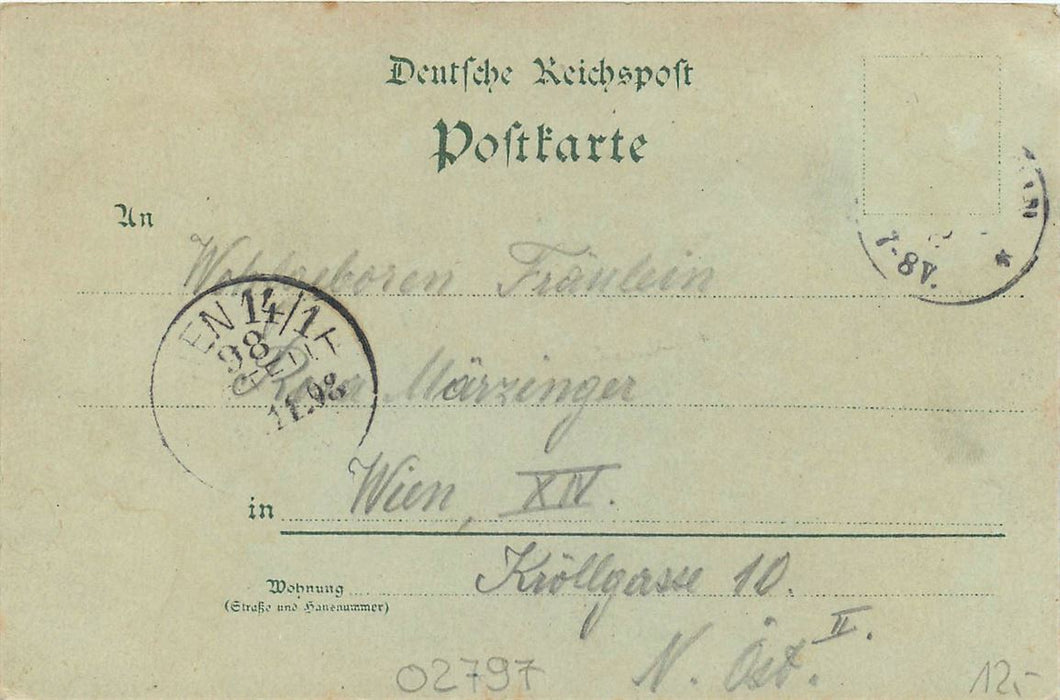 Deutsche Reichspost
Postkarte
An
Wohlgeboren Fräulein
Rosa Märzinger
in Wien, XIV.
Wohnung
(Straße und Hausnummer)
Kröllgasse 10.
II.
N. Öst.
02797
12,-
7-8V.
*
14/1
98
11.98